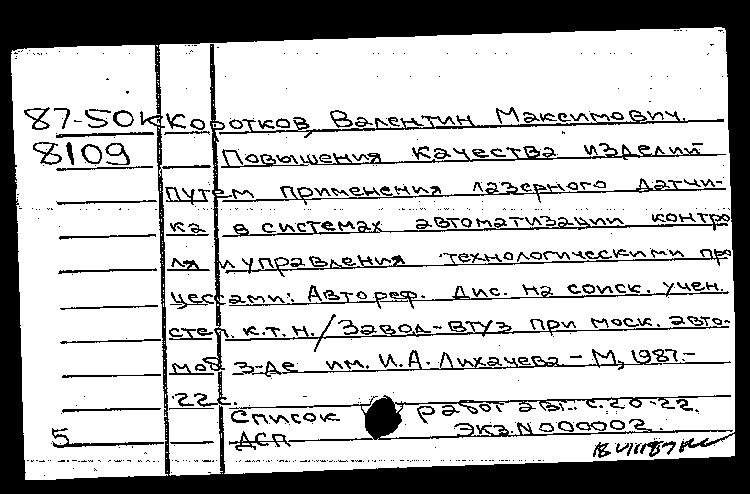 87-50к Коротков, Валентин Максимович.
8109 Повышения качества изделий
путем применения лазерного датчи-
ка в системах автоматизации контро
ля и управления технологическими про
цессами: Автореф. дис. на соиск. учен.
степ. к.т.н./Завод-втуз при моск. авто-
моб з-де им. И.А.Лихачева - М, 1987.-
22 с.
Список работ авт.: с.20-22.
5 ДСП Экз.N000002